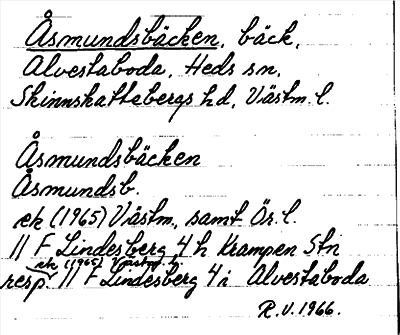 Åsmundsbäcken, bäck,
Alvestaboda, Heds sn,
Skinnskattebergs hd, Västm. l.
Åsmundsbäcken
Åsmundsb.
ek (1965) Västm., samt Ör. l.
// F Lindesberg 4 h Krampen Stn
ek (1965) Västm. l.
resp. // F Lindesberg 4 i Alvestaboda
R.V. 1966.